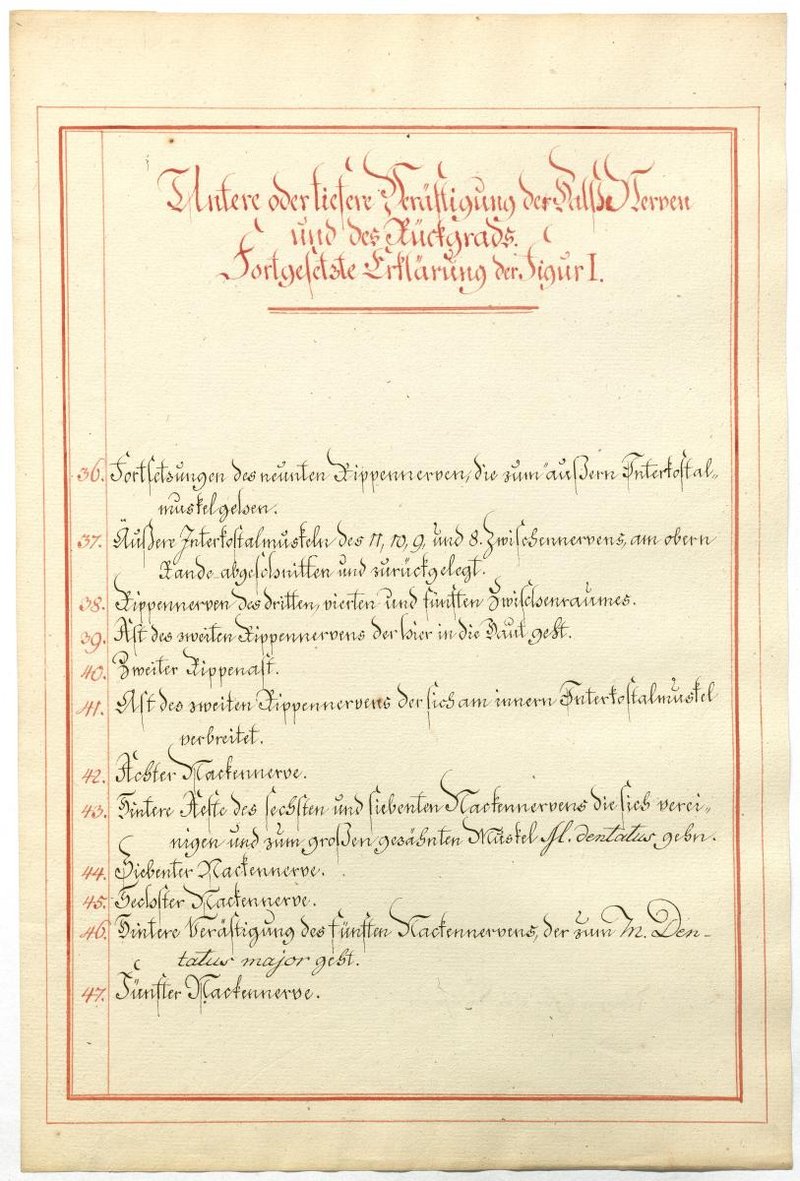 Untere oder tiefere Verästigung der Halße Nerven
und des Rückgrads.
Fortgesetzte Erklärung der Figur I.
36. Fortsetzungen des neunten Rippennerven, die zum äußern Interkostal-
muskel gehen.
37. Äußere Interkostalmuskeln des 11, 10, 9, und 8. Zwischennervens, am obern
Rande abgeschnitten und zurückgelegt.
38. Rippennerven des dritten, vierten und fünften Zwischenraumes.
39. Ast des zweiten Rippennervens der hier in die Haut geht.
40. Zweiter Rippenast.
41. Ast des zweiten Rippennervens der sich am innern Interkostalmuskel
verbreitet.
42. Achter Nackennerve.
43. Hintere Aeste des sechsten und siebenten Nackennervens die sich verei-
nigen und zum großen gezähnten Muskel M. dentatus gehn.
44. Siebenter Nackennerve.
45. Sechster Nackennerve.
46. Hintere Verästigung des fünften Nackennervens, der zum M. Den-
tatus major geht.
47. Fünfter Nackennerve.